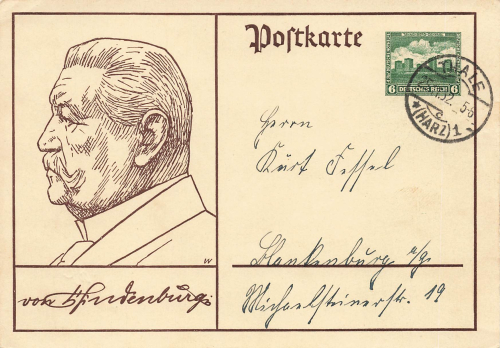 Postkarte
6 DEUTSCHES REICH 6
THALE
32. 5-6
* (HARZ) 1
Herrn
Kurt Fessel
Blankenburg a/H.
Michaelsteinerstr. 19
W
von Hindenburg